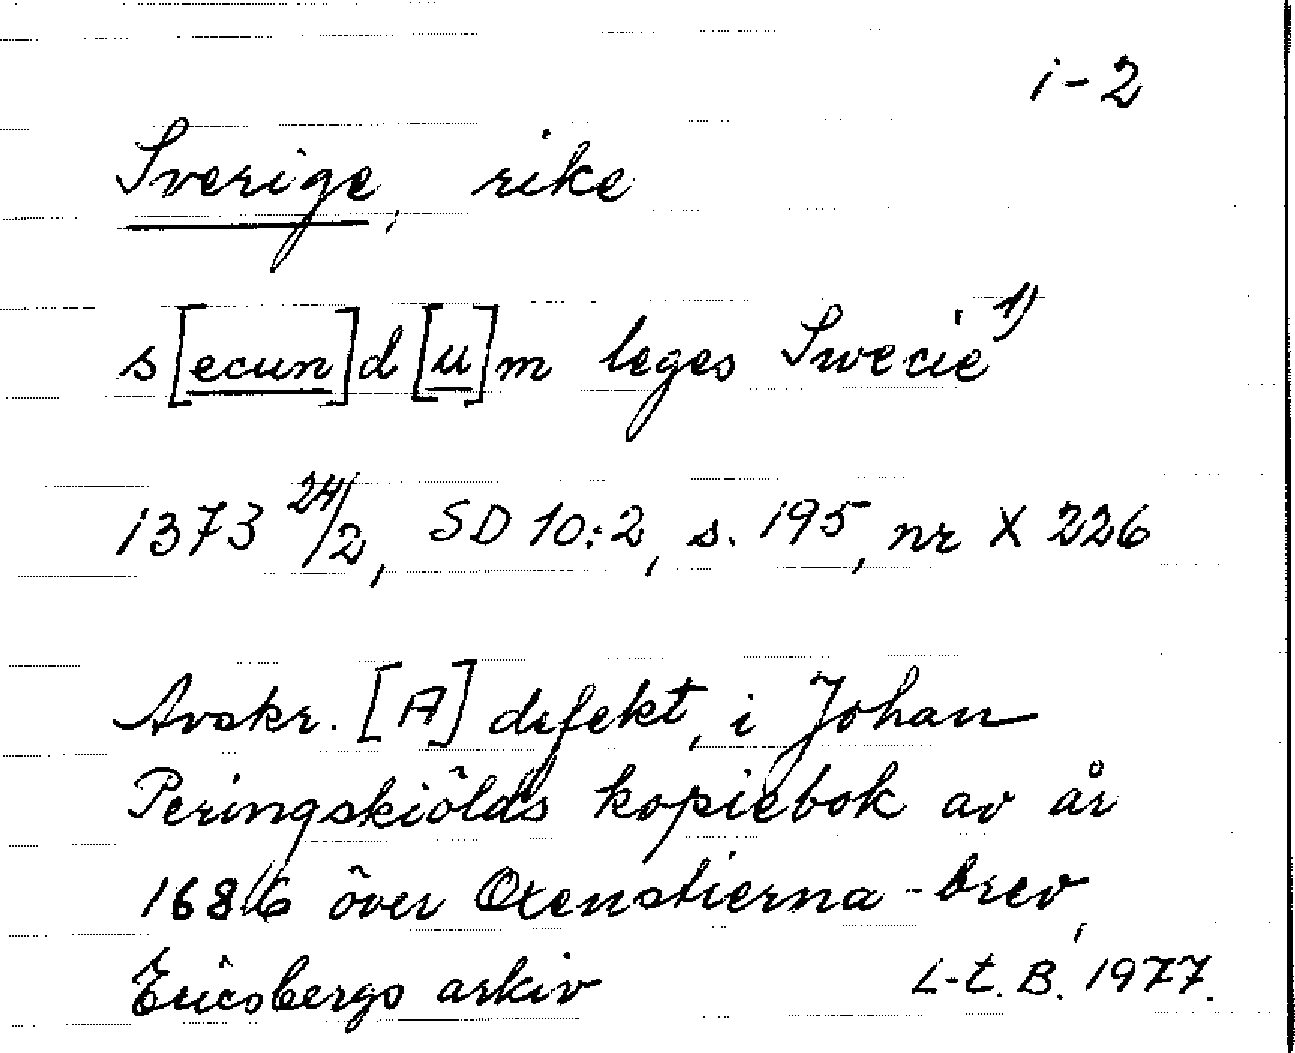 i-2
Sverige, rike
s[ecun]d[u]m leges Swecie 1)
1373 24/2, SD 10:2, s. 195, nr X 226
Avskr. [A] defekt, i Johan
Peringskiölds kopiebok av år
1686 över Oxenstierna-brev,
Ericsbergs arkiv L-t. B. 1977.